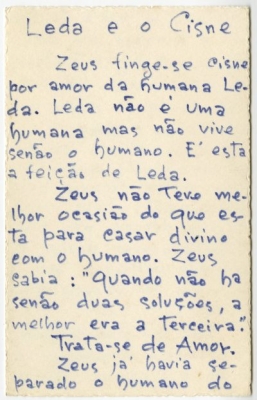 Leda e o Cisne
Zeus finge-se cisne
por amor da humana Le-
da. Leda não é uma
humana mas não vive
senão o humano. E' esta
a feição de Leda.
Zeus não teve me-
lhor ocasião do que es-
ta para casar divino
com o humano. Zeus
sabia: "Quando não ha
senão duas soluções, a
melhor era a terceira".
Trata-se de Amor.
Zeus já havia se-
parado o humano do